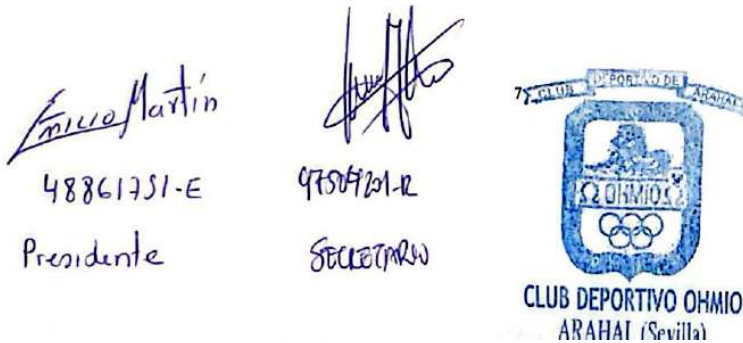 Martín
48861751-E
Presidente
SECRETARIO
CLUB DEPORTIVO DE ARAHAL
Ω OHMIOS Ω
CLUB DEPORTIVO OHMIO
ARAHAL (Sevilla)